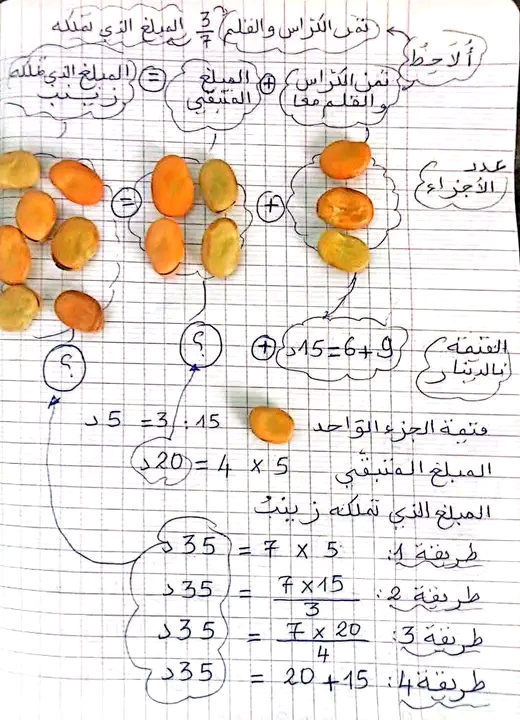 ثمن الكرّاس والقلم 3/7 المبلغ الذي تملكه
أُلَاحِظُ
ثمن الكرّاس والقلم معا + المبلغ المتبقّي = المبلغ الذي تملكه زينب
عدد الأجزاء
+ =
القيمة بالدينار
9+6=15د + ؟ ؟
قيمة الجزء الواحد 15 : 3 = 5د
المبلغ المتبقّي 5 × 4 = 20د
المبلغ الذي تملكه زينبُ
طريقة 1: 5 × 7 = 35د
طريقة 2: 7×15/3 = 35د
طريقة 3: 7×20/4 = 35د
طريقة 4: 15+20 = 35د